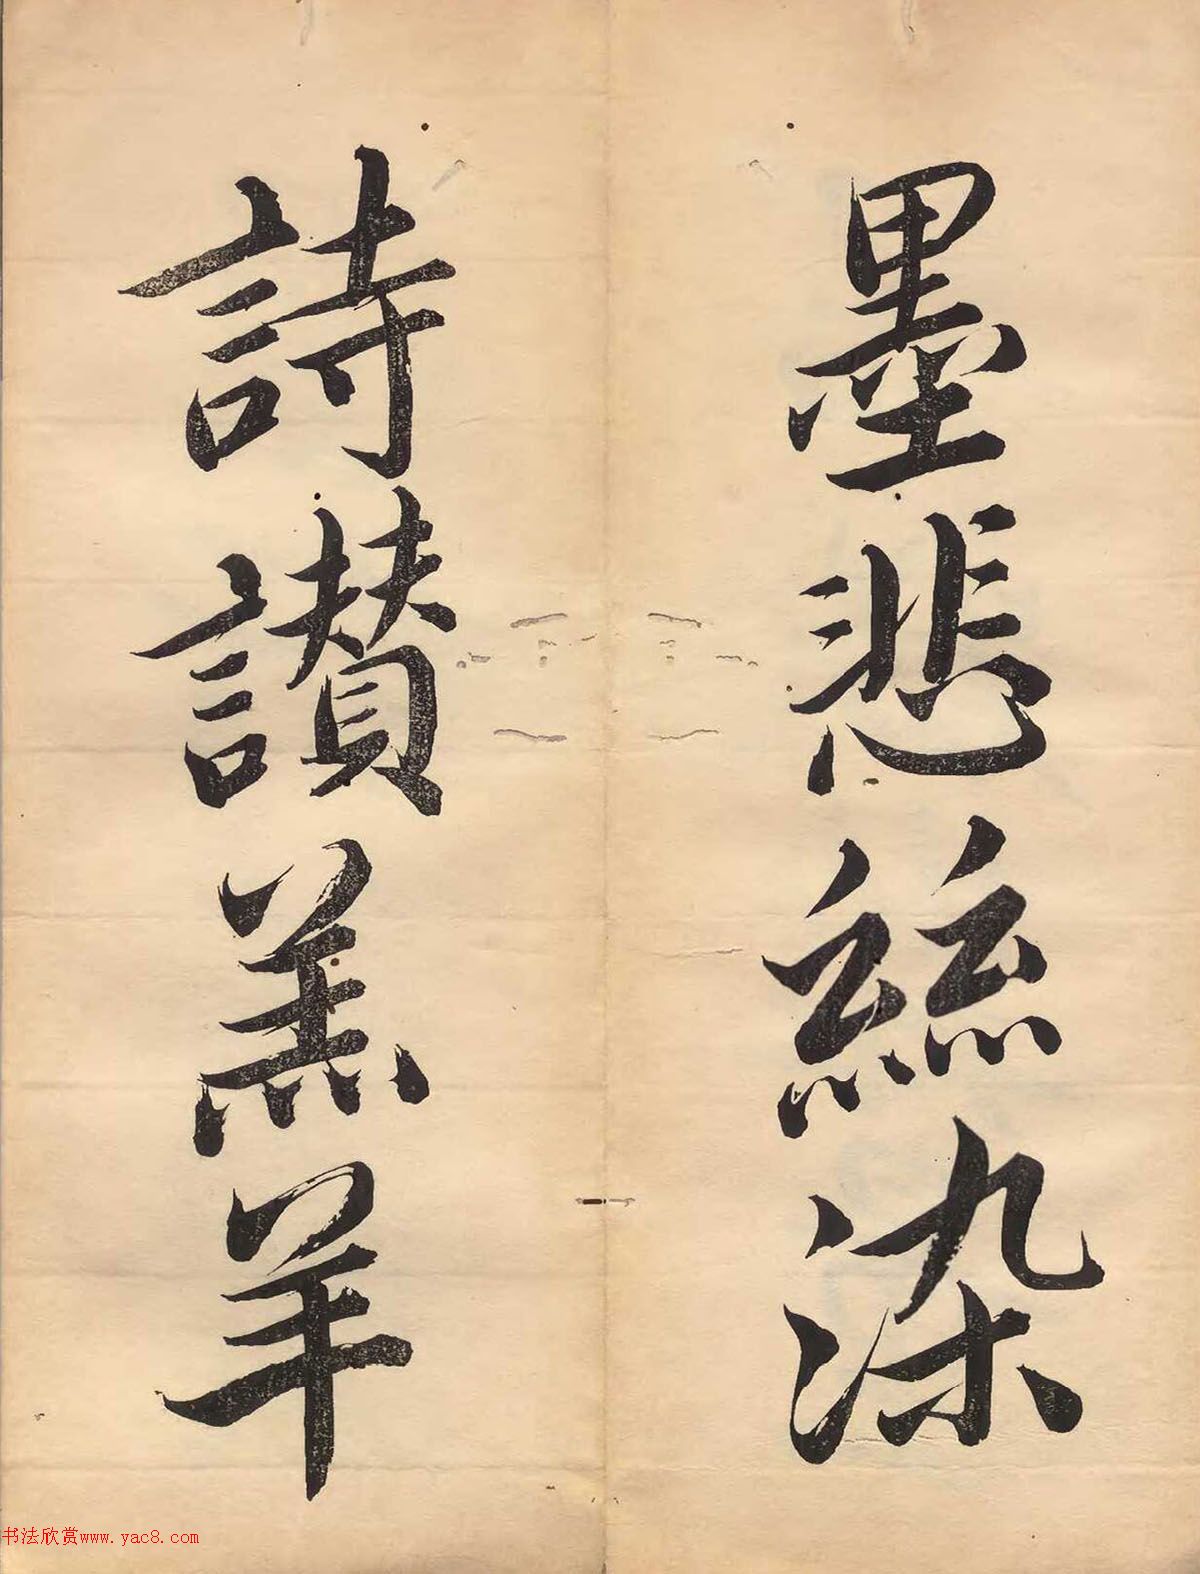 墨悲絲染
詩讃羔羊
书法欣赏www.yac8.com